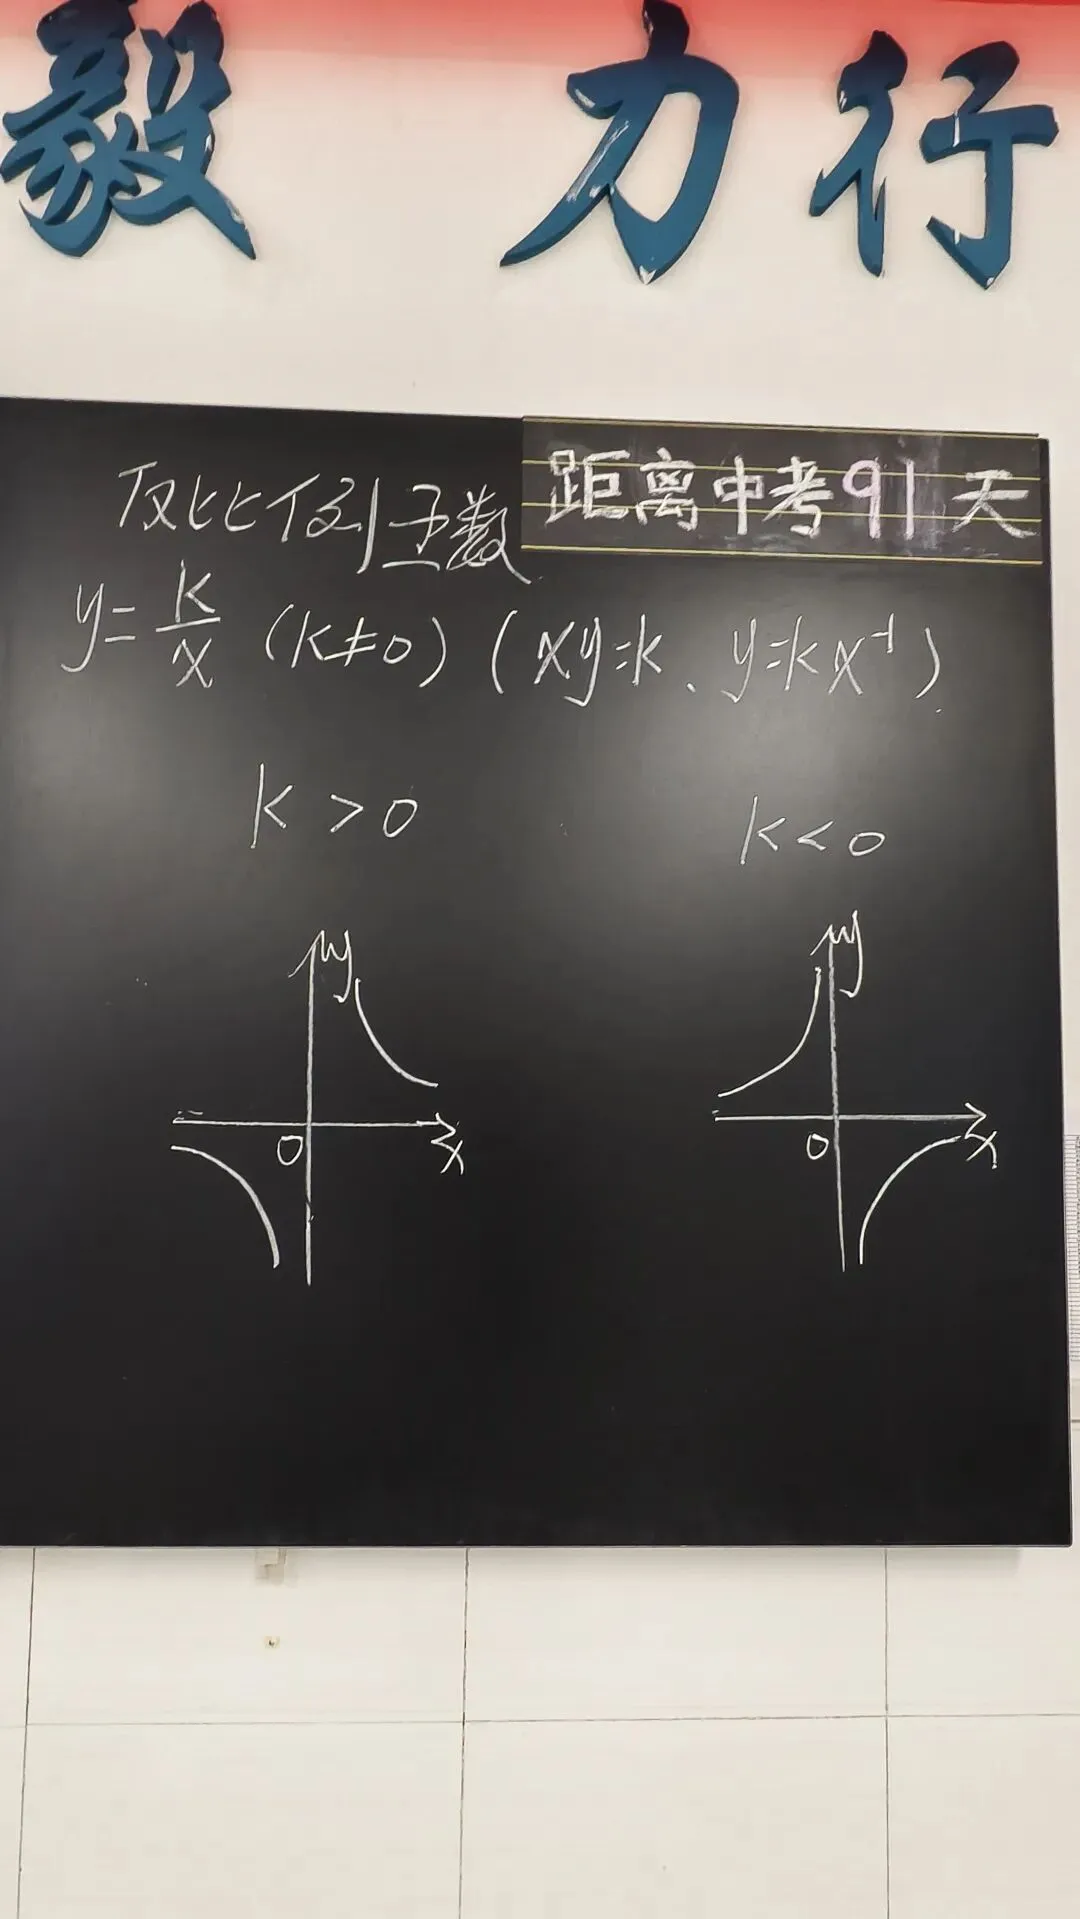 毅 力行
反比例函数
距离中考91天
y=k/x (k≠0) (xy=k、y=kx⁻¹)
k>0
k<0
y
x
0
y
x
0